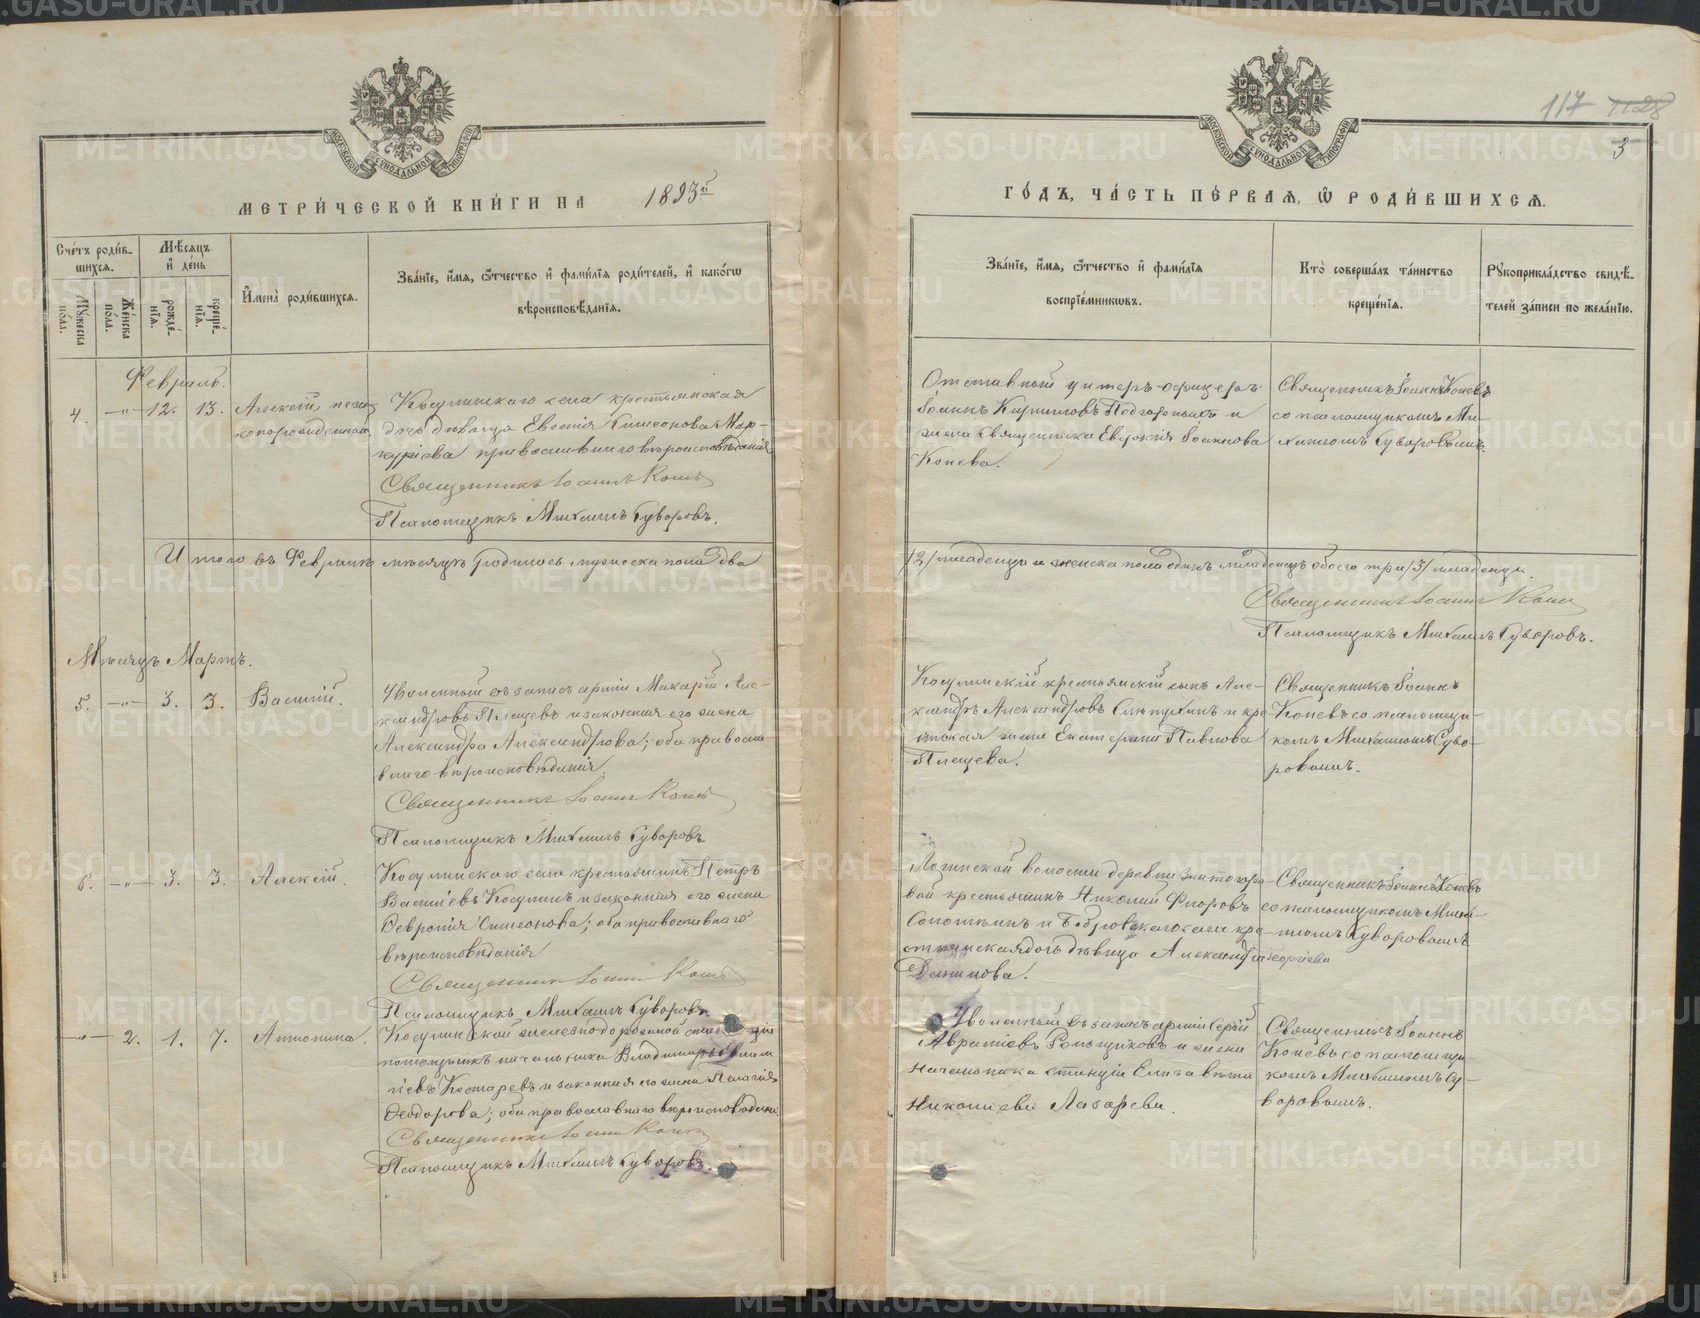 117 1128
3
МОСКОВСКОЙ СѴНОДАЛЬНОЙ ТИПОГРАФІИ
МЕТРИ́ЧЕСКОЙ КНИ́ГИ НА 1893й
Сче́тъ роди́в-
шихся.
Мѣ́сяцъ
и҆ де́нь
Му́жеска
по́ла.
Же́нска
по́ла.
рожде́-
нїѧ.
креще́-
нїѧ.
И҆мена̀ роди́вшихсѧ.
Зва́нїе, и҆́мѧ, ѻ҆́тчество и҆ фамѝлїѧ роди́телей, и҆ како́гѡ
вѣроисповѣ́данїѧ.
Февраль.
4. —„— 12. 13. Алексій неза-
коннорожденный.
Косулинскаго села крестьянская
дочь девица Евгенія Симеонова Мер-
курьева православнаго вероисповѣданія
Священникъ Іоаннъ Коневъ
Псаломщикъ Михаилъ Суворовъ.
Итого въ Февралѣ мѣсяцѣ родилось мужеска пола два
Мѣсяцъ Мартъ.
5. —„— 3. 3. Василій.
Уволенный въ запасъ арміи Макарій Але-
ксандровъ Плещевъ и законная его жена
Александра Александрова; оба православ-
наго вѣроисповѣданія
Священникъ Іоаннъ Коневъ
Псаломщикъ Михаилъ Суворовъ
6. —„— 3. 3. Алексій.
Косулинскаго села крестьянинъ Петръ
Василіевъ Косулинъ и законная его жена
Февронія Симеонова; оба православнаго
вѣроисповѣданія
Священникъ Іоаннъ Коневъ
Псаломщикъ Михаилъ Суворовъ
—„— 2. 1. 7. Антонина.
Косулинской железнодорожной станціи
помощникъ начальника Владиміръ
Костаревъ и законная его жена Пелагія
Ѳеодорова; оба православнаго вѣроисповѣданія
Священникъ Іоаннъ Коневъ
Псаломщикъ Михаилъ Суворовъ.
МОСКОВСКОЙ СѴНОДАЛЬНОЙ ТИПОГРАФІИ
ГО́ДЪ, ЧА́СТЬ ПЕ́РВАѦ, Ѽ РОДИ́ВШИХСѦ.
Зва́нїе, и҆́мѧ, ѻ҆́тчество и҆ фамѝлїѧ
воспрїе́мникѡвъ.
Кто̀ соверша́лъ та́инство
креще́нїѧ.
Рꙋкоприкла́дство свидѣ́-
телей за́писи по жела́нїю.
Отставный унтеръ-офицеръ
Іоаннъ Кирилловъ Подгорныхъ и
жена Священника Евдокія Іоаннова
Конева.
Священникъ Іоаннъ Коневъ
со псаломщикомъ Ми-
хаиломъ Суворовымъ.
/2/ младенца и женска пола одинъ младенецъ обоего три /3/ младенца.
Священникъ Іоаннъ Коневъ
Псаломщикъ Михаилъ Суворовъ.
Косулинскій крестьянскій сынъ Але-
ксандръ Александровъ и кре-
стьянская жена Екатерина Павлова
Плещева.
Священникъ Іоаннъ
Коневъ со псаломщи-
комъ Михаиломъ Суво-
ровымъ.
Логиновской волости деревни Златогоро-
вой крестьянинъ Николай Флоровъ
и Бобровскаго села кре-
стьянская дочь девица Александра Георгіева
Данилова.
Священникъ Іоаннъ Коневъ
со псаломщикомъ Миха-
иломъ Суворовымъ
Уволенный въ запасъ арміи Сергій
Авраміевъ и жена
начальника станціи Елизавета
Николаева Лазарева.
Священникъ Іоаннъ
Коневъ со псаломщи-
комъ Михаиломъ Су-
воровымъ.
METRIKI.GASO-URAL.RU